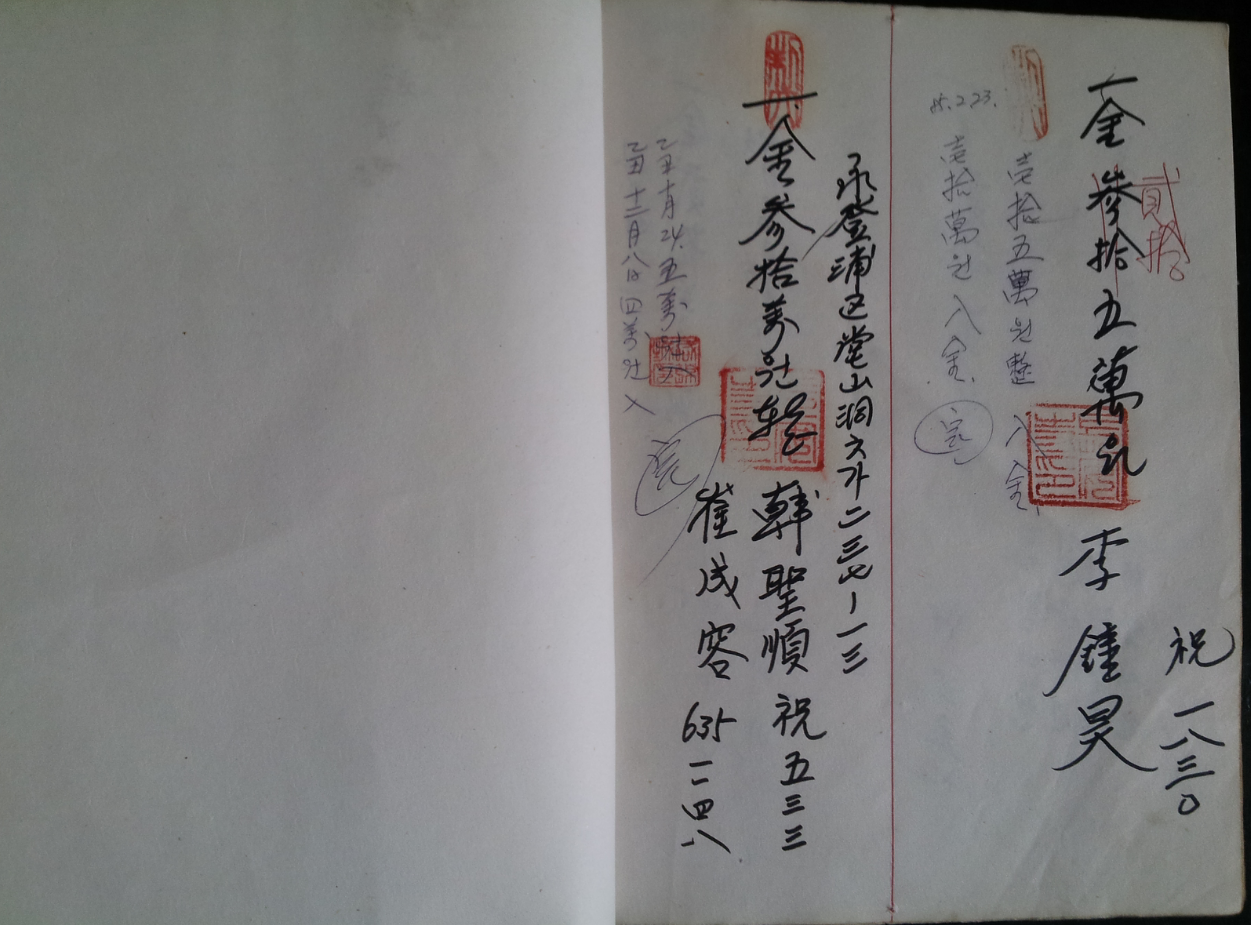 祝 一八三〇
一金 參拾五萬원 李鍾昊
貳拾
壱拾五萬원整 入金
85.2.23. 壱拾萬원 入金.
永登浦区堂山洞六가二三七-一三
一金參拾萬원整 韓聖順 祝五三三
崔成容 635 一一四八
乙丑十月24. 五萬원入
乙丑十二月八日 四萬원 入